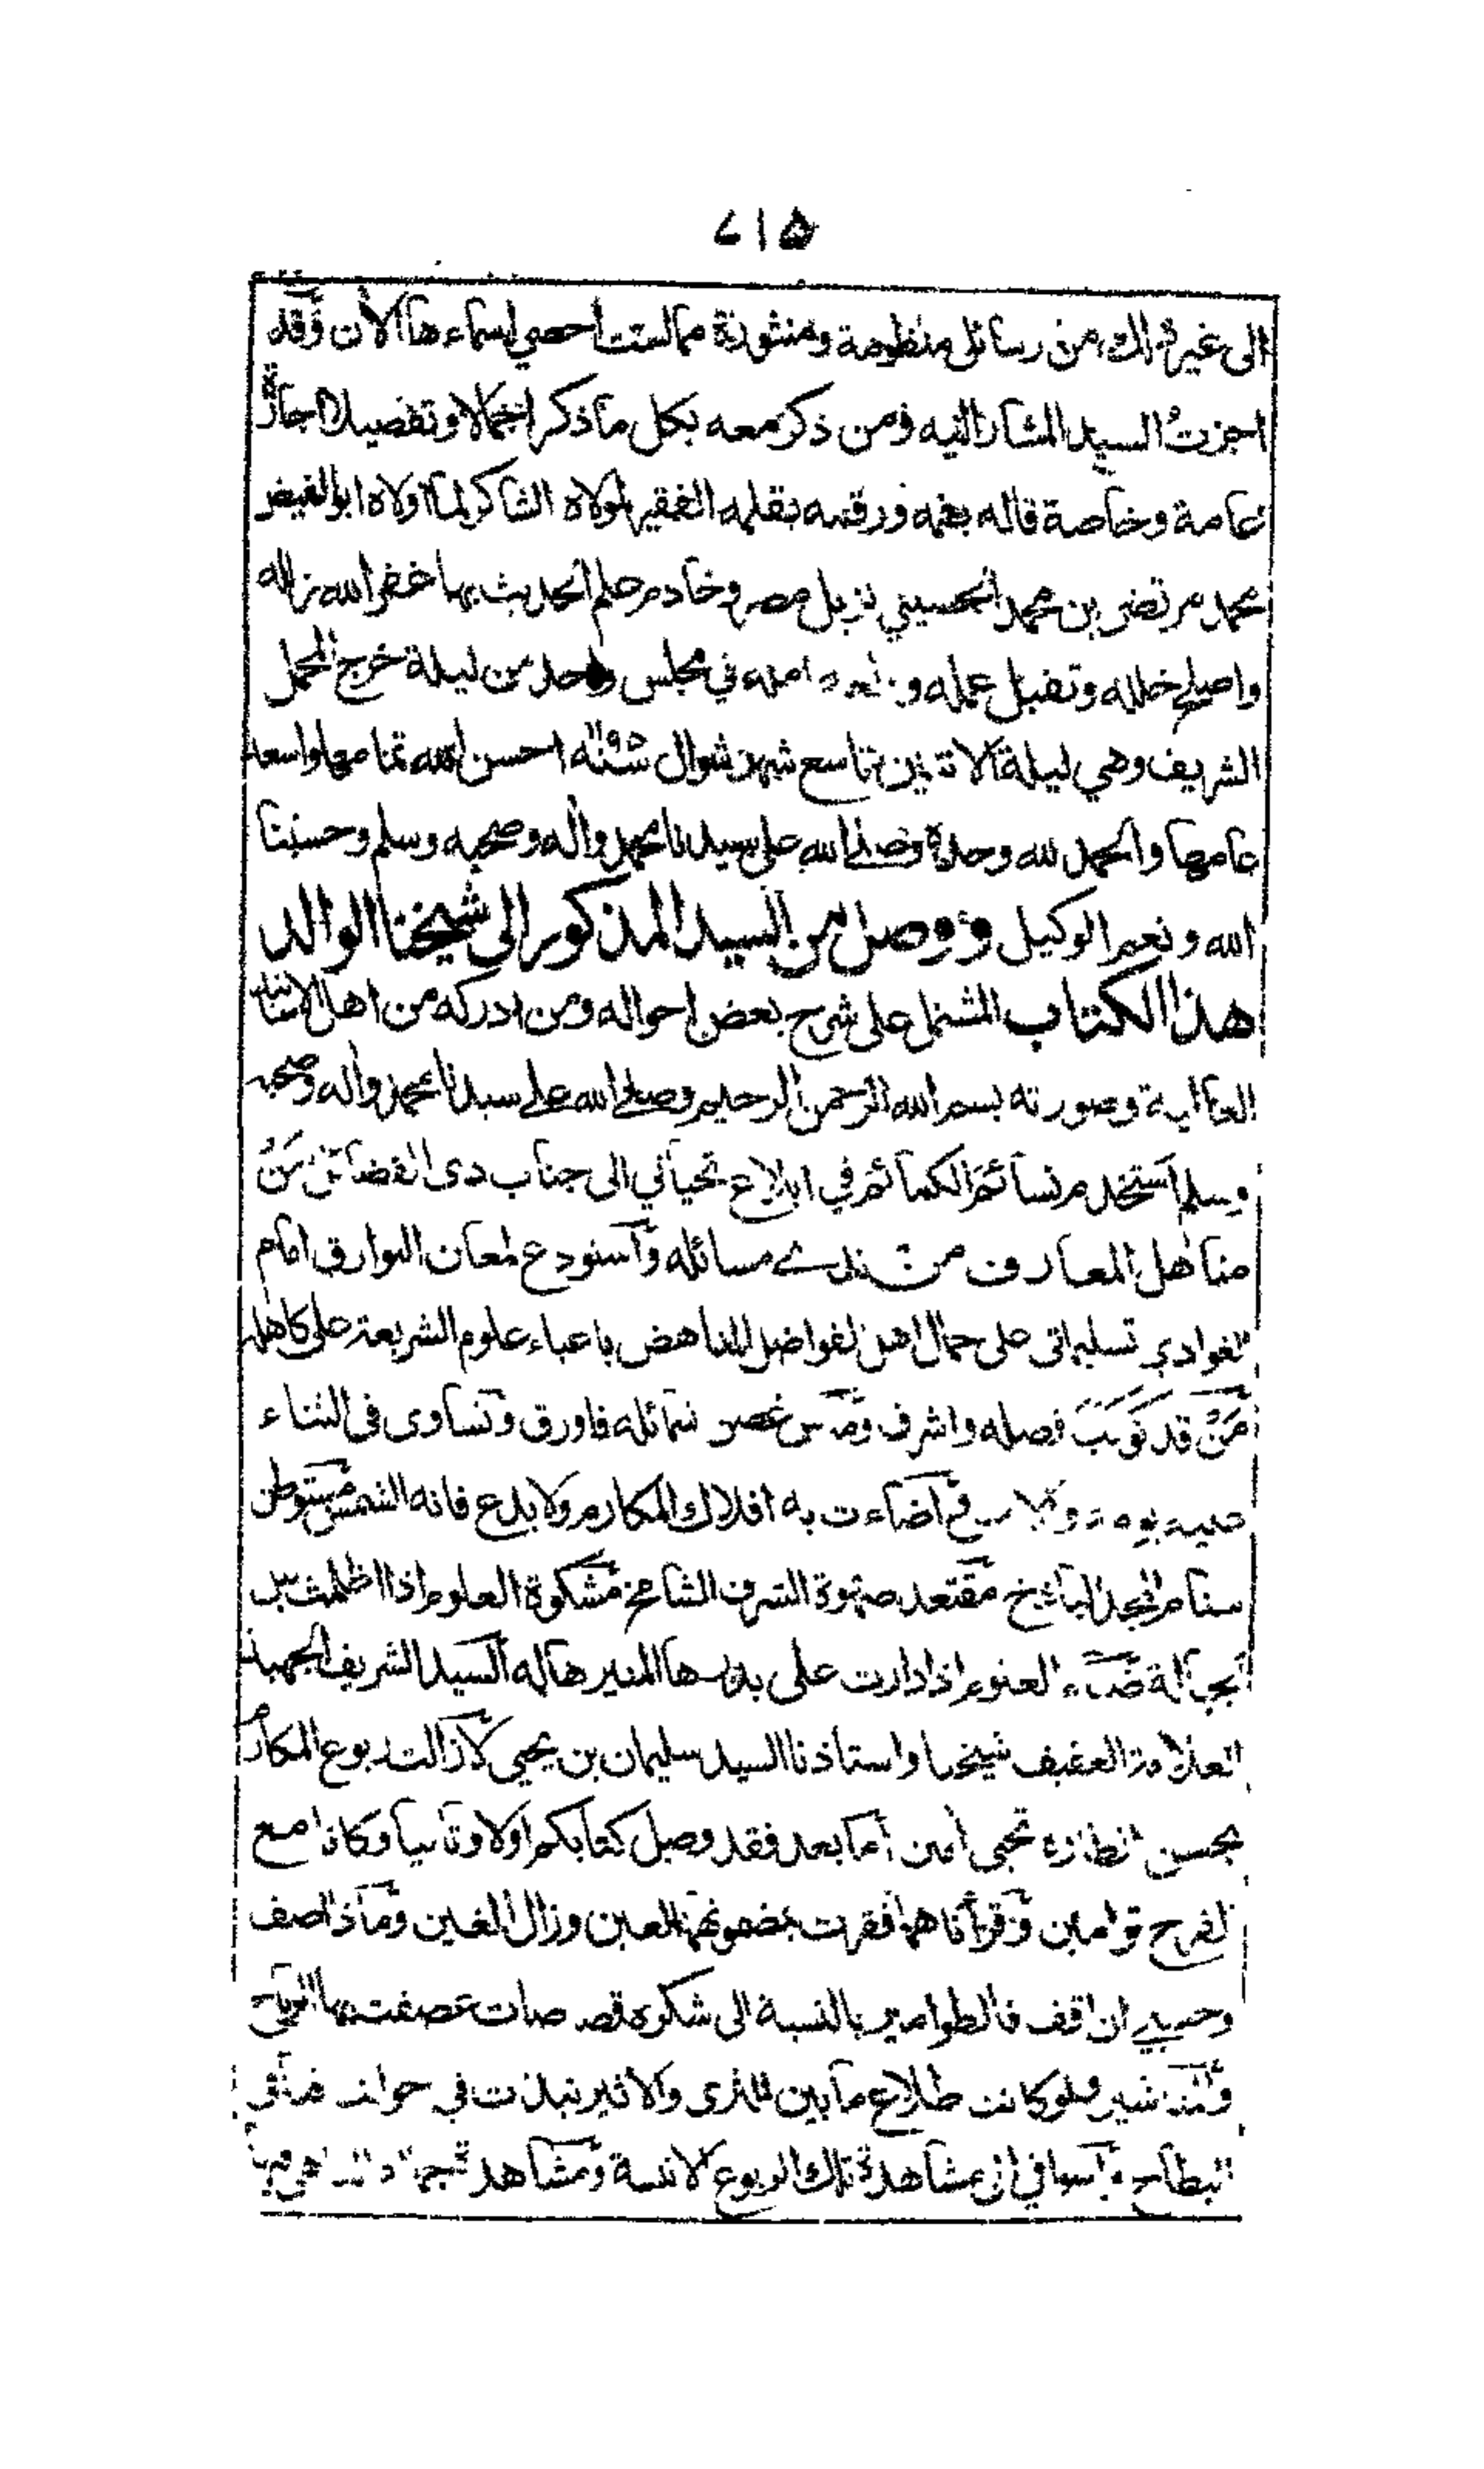 ٧١٥
الى غير ذلك من رسائل منظومة ومنثورة مما لست أحصي اسماءها الآن وقد
اجزت السيد المشار اليه ومن ذكر معه بكل ما ذكر اجمالا وتفصيلا اجازة
عامة وخاصة قاله بفمه ورقمه بقلمه الفقير لمولاه الشاكر لما اولاه ابو الفيض
محمد مرتضى بن محمد الحسيني نزيل مصر وخادم علم الحديث بها غفر الله زلله
واصلح خلله وتقبل عمله امله في مجلس واحد من ليلة خرج المحمل
الشريف وهي ليلة الاثنين تاسع شهر شوال سنة احسن الله تمامها واسعد
عامها والحمد لله وحده وصلى الله على سيدنا محمد وآله وصحبه وسلم وحسبنا
الله ونعم الوكيل ووصل من السيد المذكور الى شيخنا الوالد
هذا الكتاب المشتمل على شرح بعض احواله ومن ادركه من اهل الاسناد
العالية وصورته بسم الله الرحمن الرحيم وصلى الله على سيدنا محمد وآله وصحبه
وسلم استخدم نسائم الكمائم في ابلاغ تحياتي الى جناب ذى الفضائل من
مناهل المعارف من مسائله وأستودع لمعان البوارق امام
الغوادي تسليماتى على جمال اهل الفواضل الناهض باعباء علوم الشريعة على كاهله
من قد فضله واشرف غصن شمائله فاورق وتساوى فى الثناء
اضاءت به افلاك المكارم ولا بدع فانه الشمس مستوطن
سنام المجد الباذخ مقتعد صهوة الشرف الشامخ مشكوة العلوم اذا اظلمت
العلوم اذا دارت على بدرها المنير هاله السيد الشريف الجهبذ
العلامة العفيف شيخنا واستاذنا السيد سليمان بن يحيى لا زالت ربوع المكارم
بحسن انظاره تحيى أمين أما بعد فقد وصل كتابكم اولا وثانيا وكانا مع
الفرح توامين وقرأناهما فقرت بمضمونهما العين وزال الغين وماذا اصف
وحسبي ان اقف فالطوامير بالنسبة الى شكوه قصصات عصفت بها الريح
ولو كانت طلاع ما بين الثرى والاثير نبذت في
البطاح الى مشاهدة تلك الربوع الانسة ومشاهد